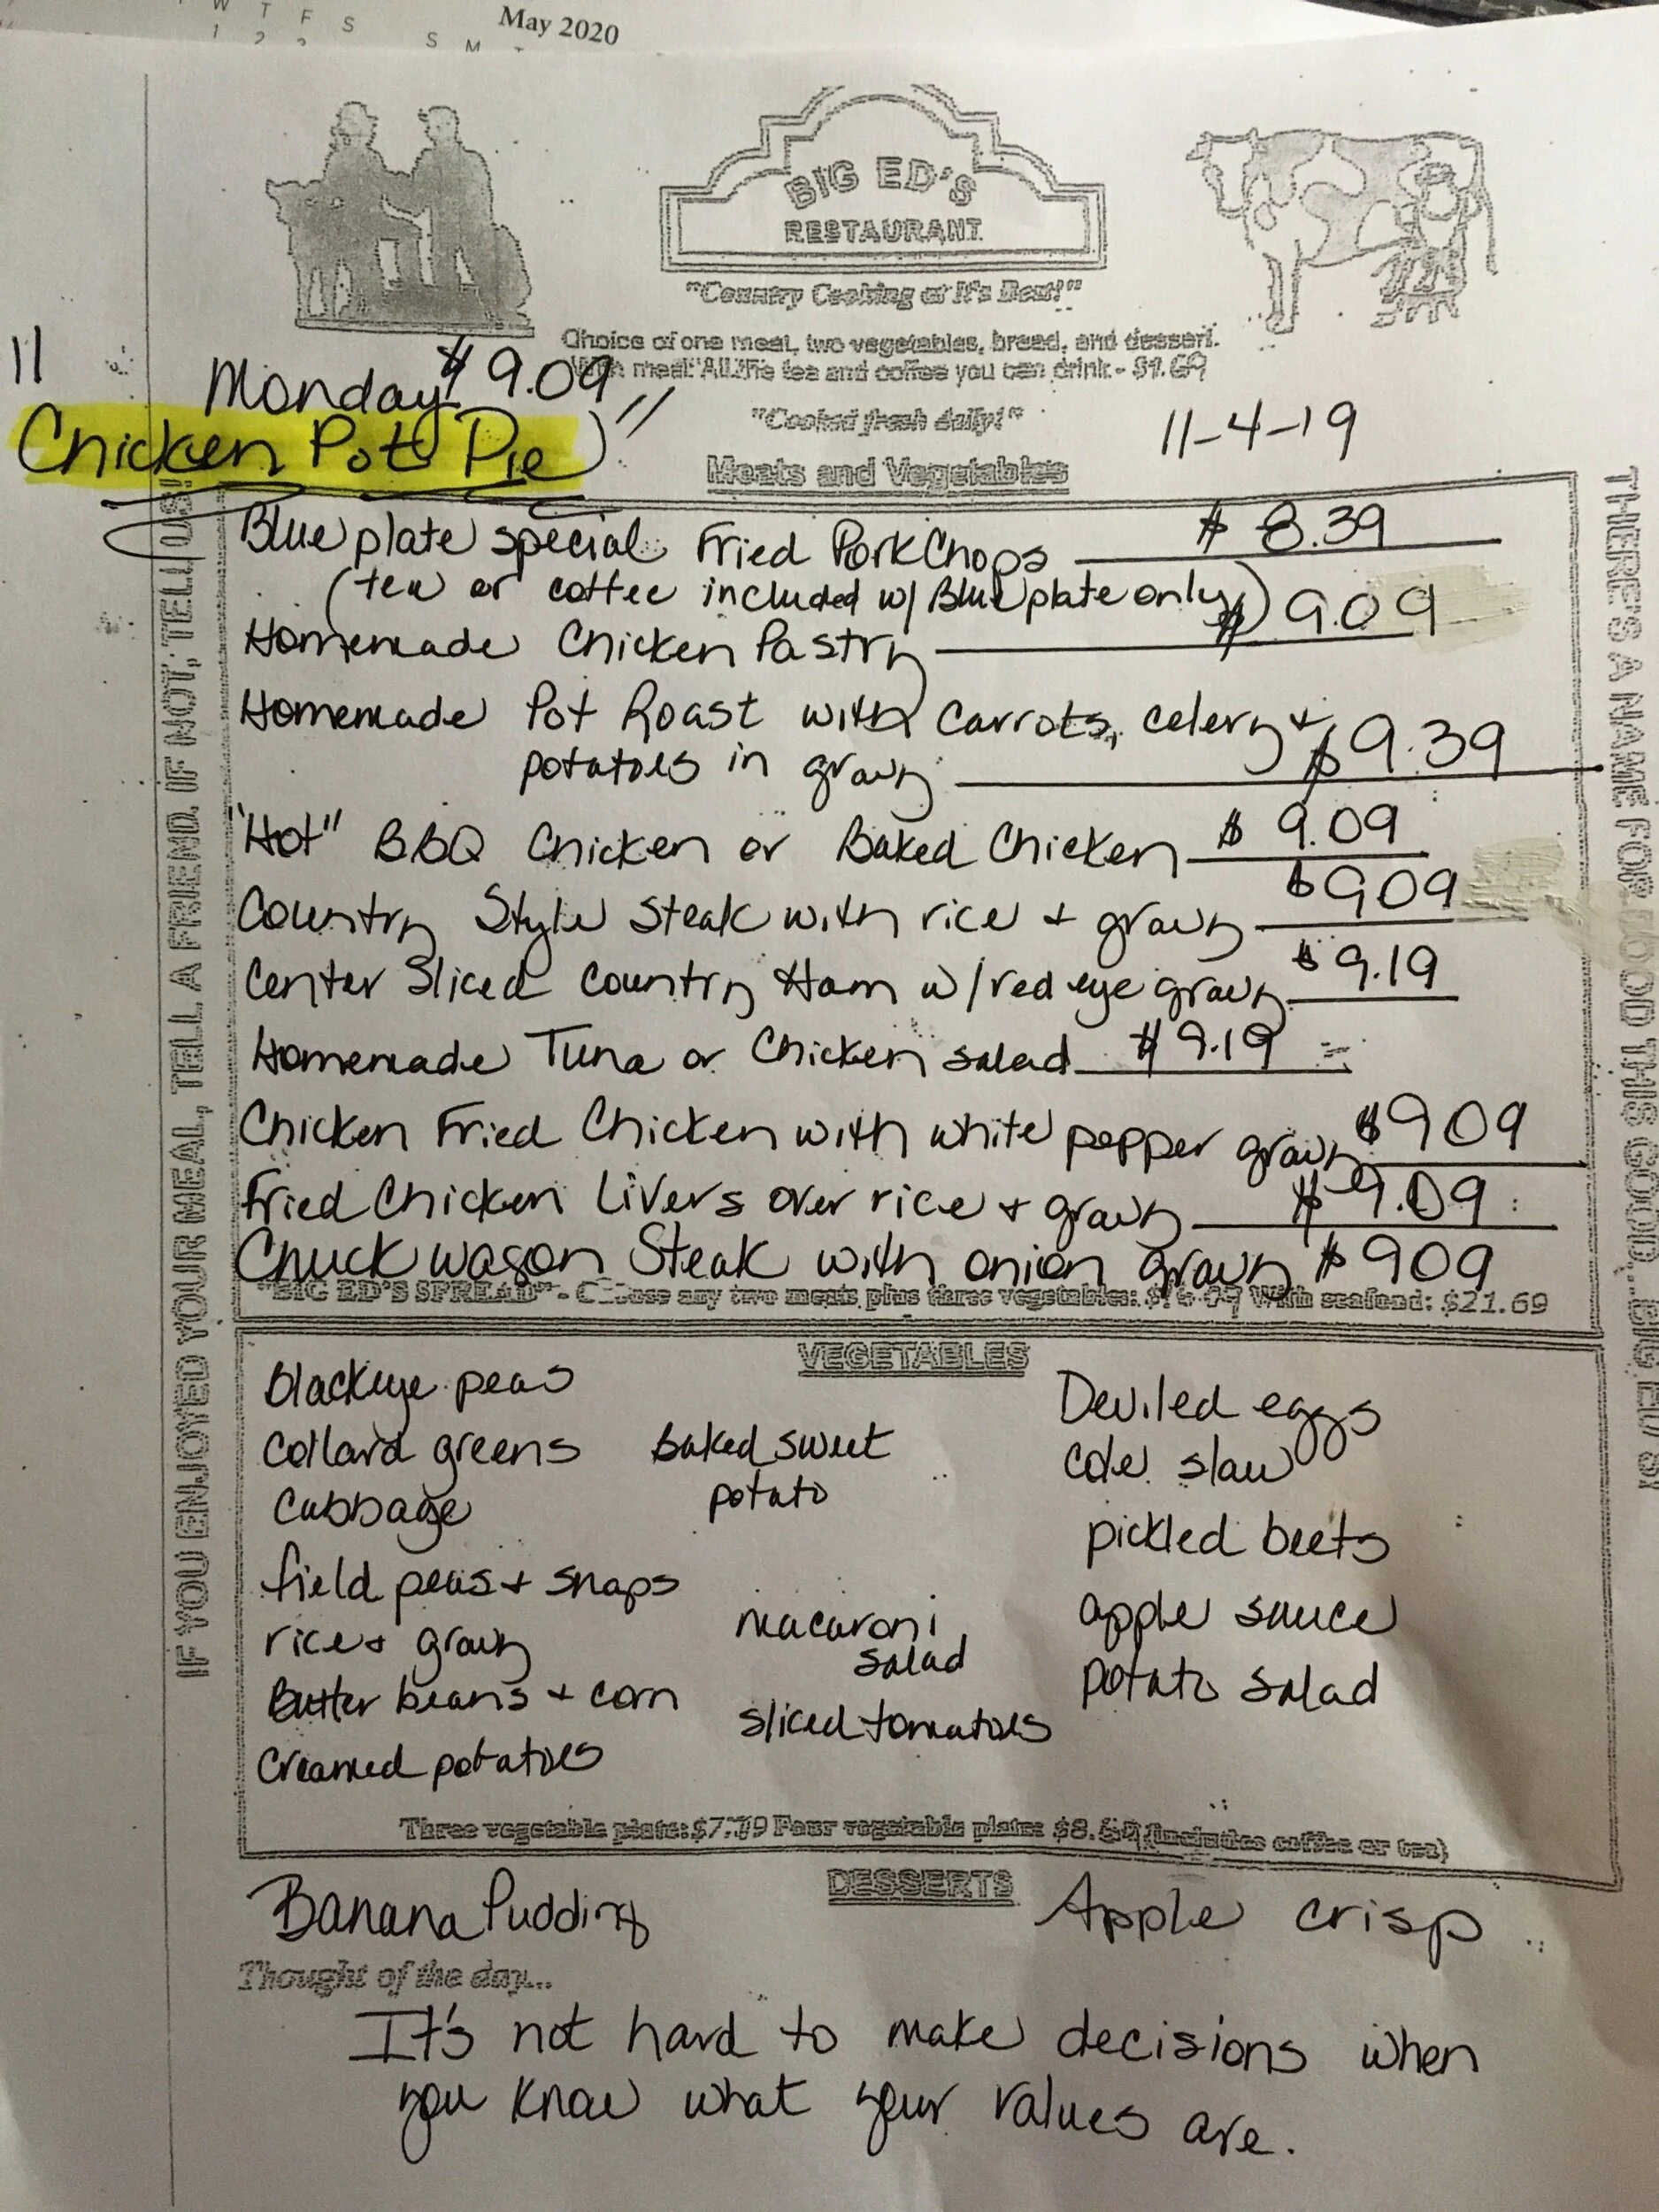 May 2020
W T F S
S M
BIG ED'S
RESTAURANT
"Country Cooking at It's Best!"
Choice of one meat, two vegetables, bread, and dessert.
With meal: All the tea and coffee you can drink - $1.69
"Cooked fresh daily!"
11-4-19
Monday $9.09
"Chicken Pot Pie"
Meats and Vegetables
Blue plate special Fried Pork Chops $8.39
(tea or coffee included w/ Blue plate only)
Homemade Chicken Pastry $9.09
Homemade Pot Roast with carrots, celery +
potatoes in gravy $9.39
"Hot" BBQ Chicken or Baked Chicken $9.09
Country Style Steak with rice + gravy $909
Center Sliced Country Ham w/ red eye gravy $9.19
Homemade Tuna or Chicken salad $9.19
Chicken Fried Chicken with white pepper gravy $909
Fried Chicken Livers over rice + gravy $9.09
Chuck wagon Steak with onion gravy $909
"BIG ED'S SPREAD" - Choose any two meats plus three vegetables: With seafood: $21.69
VEGETABLES
Blackeye peas
Collard greens
Cabbage
field peas + snaps
rice + gravy
Butter beans + corn
Creamed potatoes
Baked sweet
potato
macaroni
salad
sliced tomatoes
Deviled eggs
Cole slaw
pickled beets
apple sauce
potato salad
Three vegetable plate: Four vegetable plate: (includes coffee or tea)
DESSERTS
Banana Pudding
Apple crisp
Thought of the day...
It's not hard to make decisions when
you know what your values are.
IF YOU ENJOYED YOUR MEAL, TELL A FRIEND. IF NOT, TELL US!
THERE'S A NAME FOR FOOD THIS GOOD... BIG ED'S!